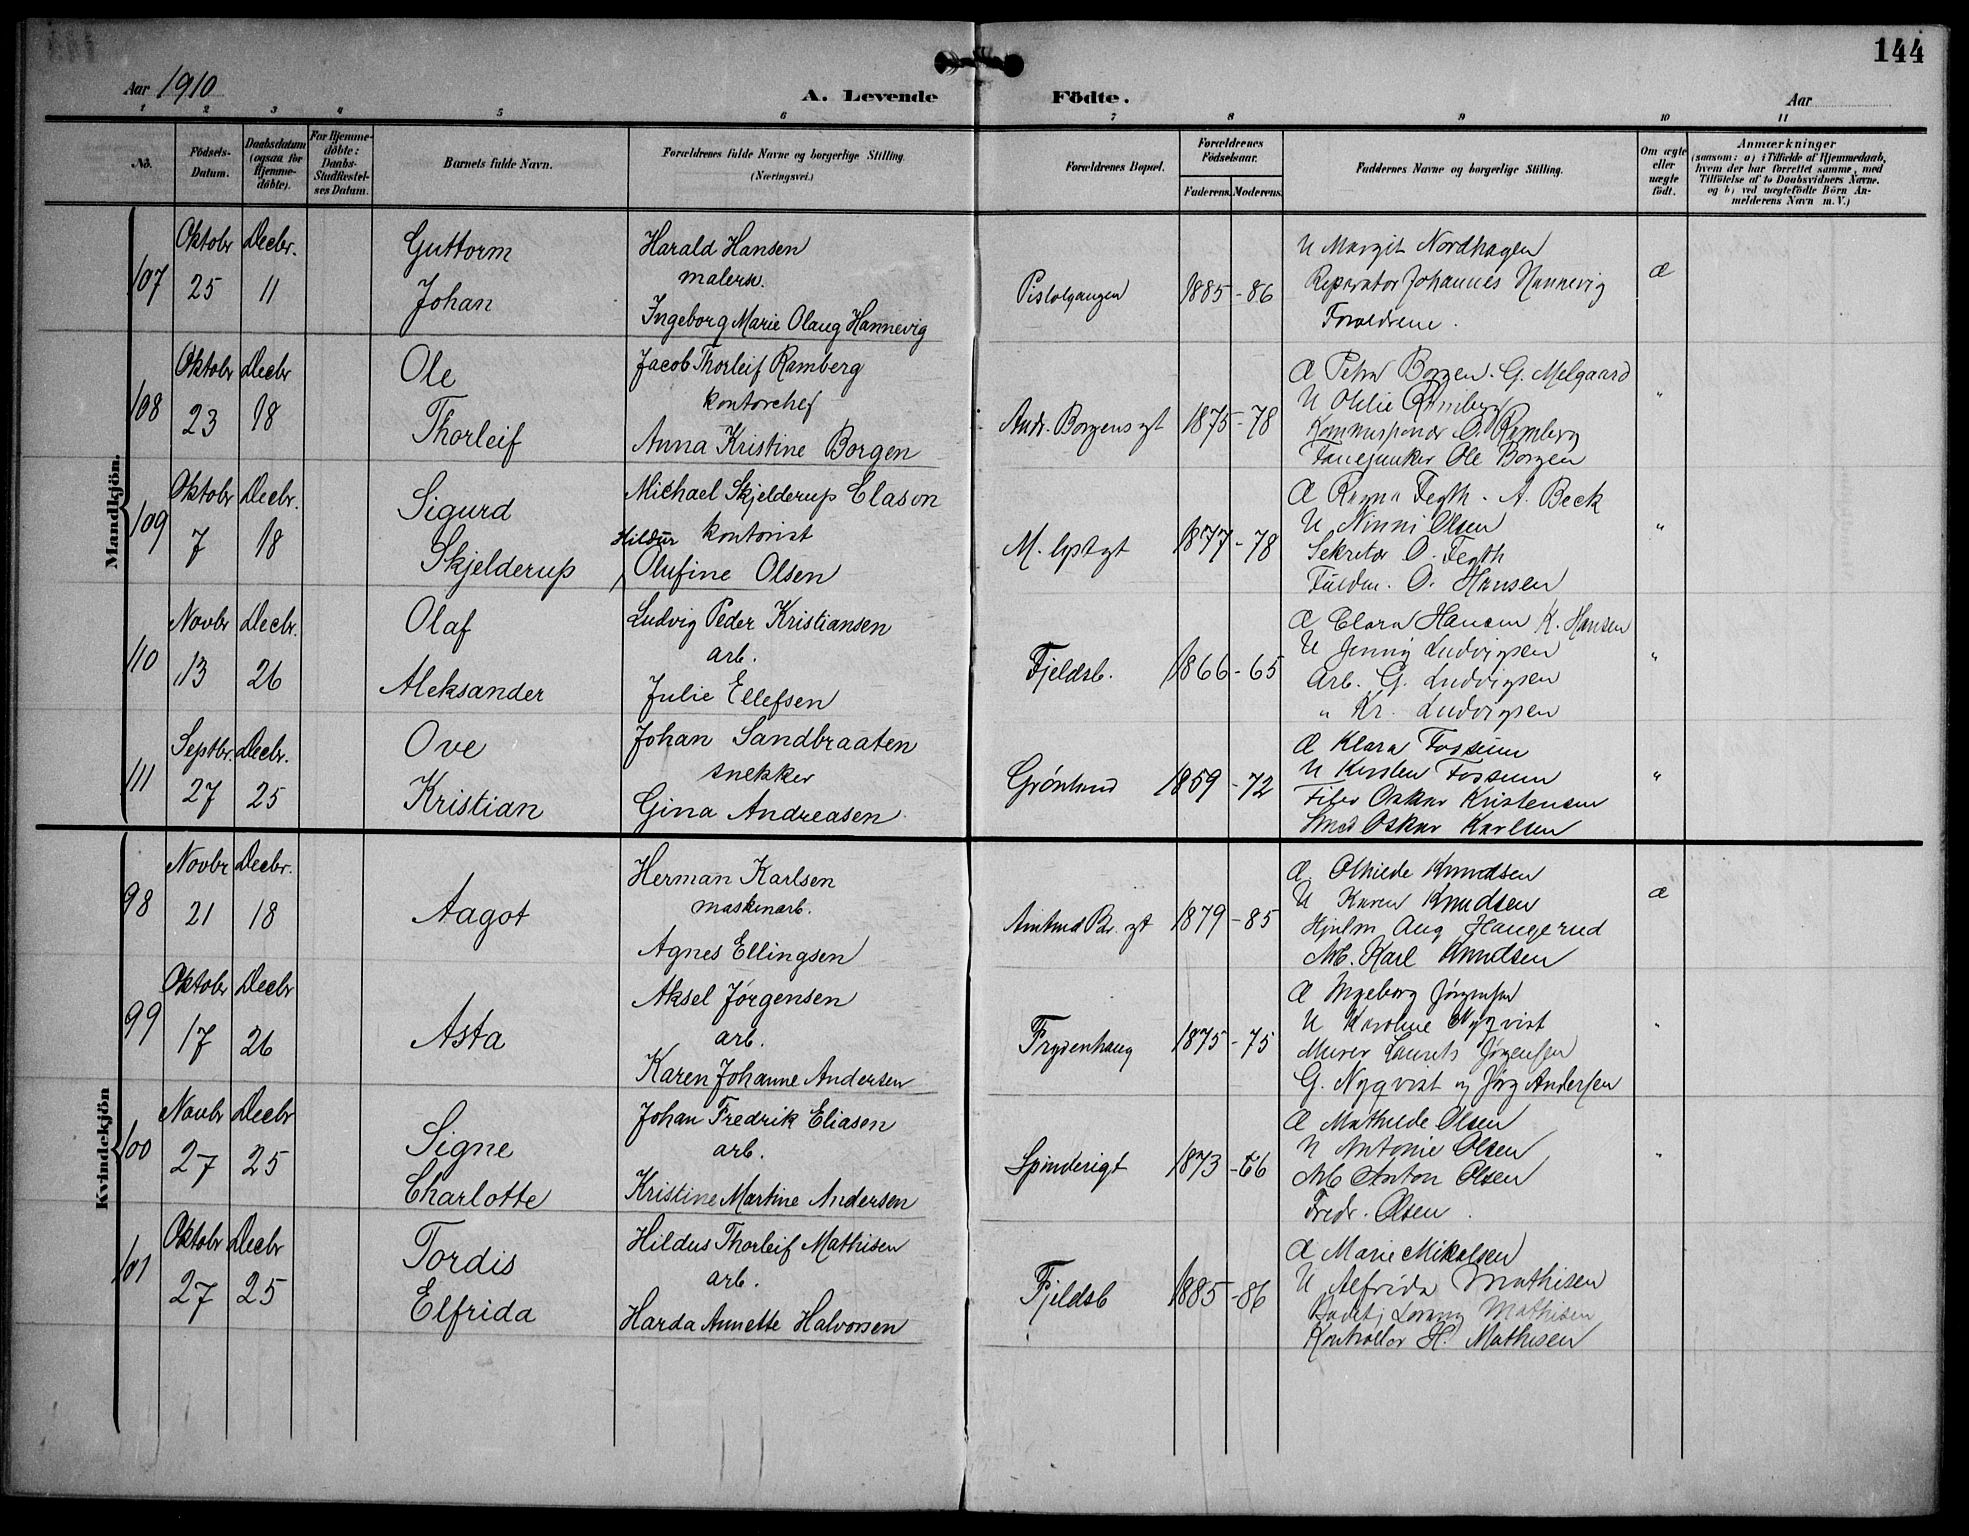 144
Aar 1910
A. Levende Födte.
Aar
1 2 3 4 5 6 7 8 9 10 11
No.
Födsels-Datum.
Daabsdatum (ogsaa for Hjemmedöbte).
For Hjemmedöbte: Daabs-Stadfæstelses Datum.
Barnets fulde Navn.
Forældrenes fulde Navne og borgerlige Stilling. (Næringsvei.)
Forældrenes Bopæl.
Forældrenes Födselsaar.
Faderens. Moderens.
Faddernes Navne og borgerlige Stilling.
Om ægte eller uægte födt.
Anmærkninger
(saasom: a) i Tilfælde af Hjemmedaab, hvem der har forrettet samme, med Tilföielse af to Daabsvidners Navne. og b) ved uægtefödte Börn Anmelderens Navn m. V.)
Mandkjön.
107 Oktobr 25 Decbr. 11
Guttorm
Johan
Harald Hansen
malersv.
Ingeborg Marie Olaug Hannevig
Pistolgangen 1885 - 86
U Margit Nordhagen
Reparatør Johannes Hannevig
Forældrene.
Æ
108 Oktobr 23 Decbr 18
Ole
Thorleif
Jacob Thorleif Ramberg
kontorchef
Anna Kristine Borgen
Andr. Borgens gt 1875 - 78
Æ Petra Borgen. G. Melgaard
U Othlie Ramberg
O. Ramberg
Fanejunker Ole Borgen
"
109 Oktobr 7 Decbr. 18
Sigurd
Skjelderup
Michael Skjelderup Elason
kontorist
Hildur Olufine Olsen
1877 - 78
Æ Ragna Fegth. A. Beck
U Ninni Olsen
Sekretær O. Fegth
O. Hansen
"
110 Novbr 13 Decbr. 26
Olaf
Aleksander
Ludvig Peder Kristiansen
arb.
Julie Ellefsen
Fjeldsb. 1866 - 65
Æ Clara Hansen K. Hansen
U Jenny Ludvigsen
Arb. G. Ludvigsen
" Kr. Ludvigsen
"
111 Septbr. 27 Decbr. 25
Ove
Kristian
Johan Sandbraaten
snekker
Gina Andreasen
Grønlund 1859 - 72
Æ Klara Fossum
U Kirsten Fossum
Filer Oskar Kristensen
Smed Oskar Karlsen
"
Kvindekjön
98 Novbr 21 Decbr. 18
Aagot
Herman Karlsen
maskinarb.
Agnes Ellingsen
1879 - 85
Æ Othilde Knudsen
U Karen Knudsen
Hjulm. Aug Haugerud
Arb. Karl Knudsen
Æ
99 Oktobr 17 Decbr 26
Asta
Aksel Jørgensen
arb.
Karen Johanne Andersen
Frydenhaug 1875 - 75
Æ Ingeborg Jørgensen
U Karoline Nyqvist
Murer Laurits Jørgensen
G. Nyqvist og Jørg Andersen
"
100 Novbr 27 Decbr 25
Signe
Charlotte
Johan Fredrik Eliasen
arb.
Kristine Martine Andersen
Spinderigt 1873 - 66
Æ Mathilde Olsen
U Antonie Olsen
Arb Anton Olsen
Fredr. Olsen.
"
101 Oktobr 27 Decbr 25
Tordis
Elfrida
Hildus Thorleif Mathisen
arb.
Harda Annette Halvorsen
Fjeldsb 1885 - 86
Æ Marie Mikalsen
U Alfrida Mathisen
Mathisen
Kontrollør H. Mathisen